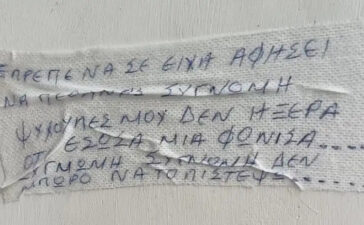 ΕΠΡΕΠΕ ΝΑ ΣΕ ΕΙΧΑ ΑΦΗΣΕΙ
ΝΑ ΣΥΓΝΟΜΗ
ΨΥΧΟΥΛΕΣ ΜΟΥ ΔΕΝ ΗΞΕΡΑ
ΟΤΙ ΕΣΩΣΑ ΜΙΑ ΦΩΝΙΣΑ....
ΣΥΓΝΩΜΗ ΣΥΓΝΩΜΗ ΔΕΝ
ΜΠΩΡΟ ΝΑ ΤΟ ΠΙΣΤΕΨΩ.....